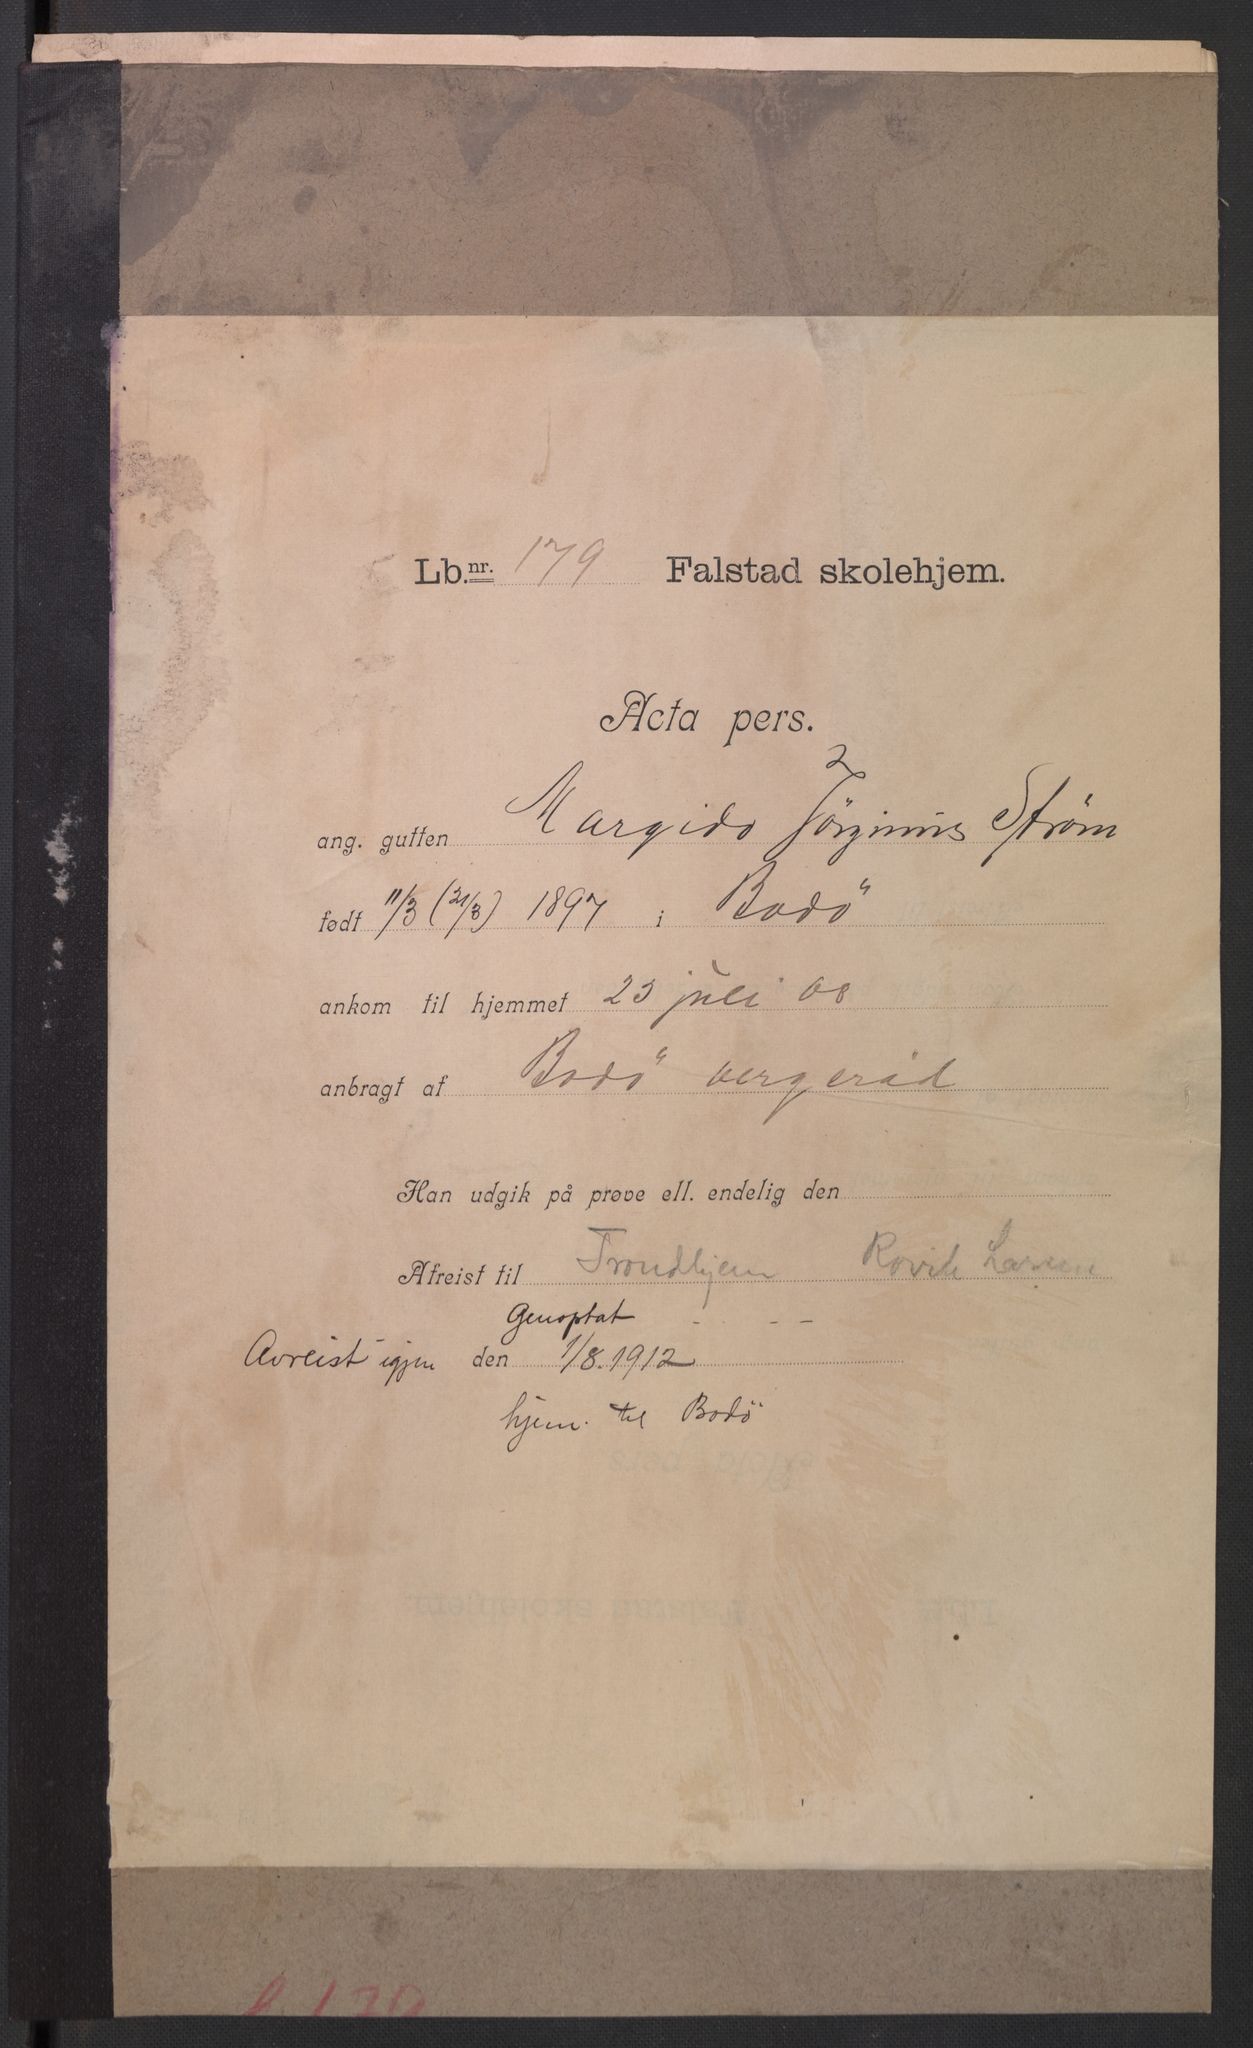 Lb.nr. 179 Falstad skolehjem.
Acta pers.
ang. gutten Margido Jörginius Ström
født 11/3 (21/3) 1897 i Bodö
ankom til hjemmet 23 juli 08
anbragt af Bodö vergeråd
Han udgik på prøve ell. endelig den
Afreist til Trondhjem Rovik Larsen
Genoptat - - - -
Avreist igjen den 1/8.1912
hjem til Bodö